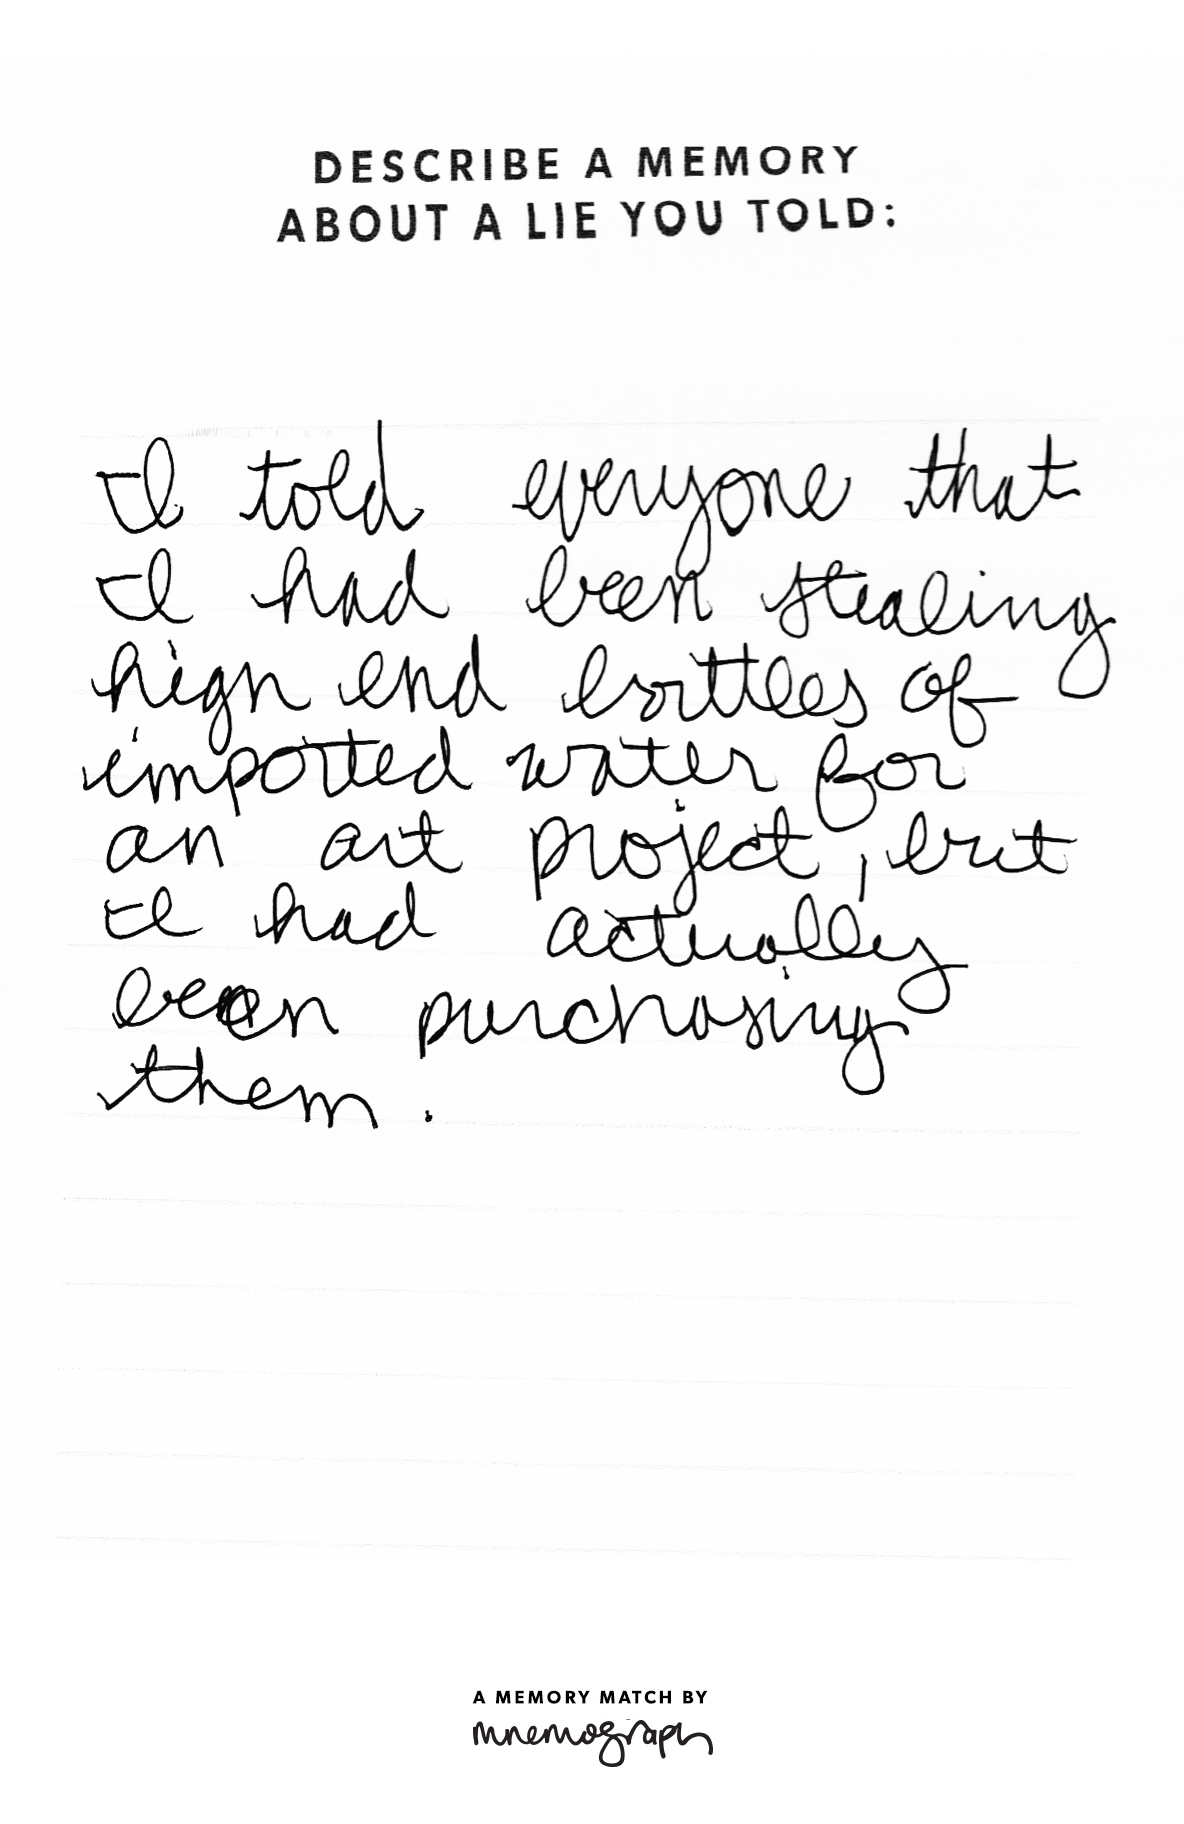 DESCRIBE A MEMORY
ABOUT A LIE YOU TOLD:
I told everyone that
I had been stealing
high end bottles of
imported water for
an art project, but
I had actually
been purchasing
them.
A MEMORY MATCH BY
mnemograph